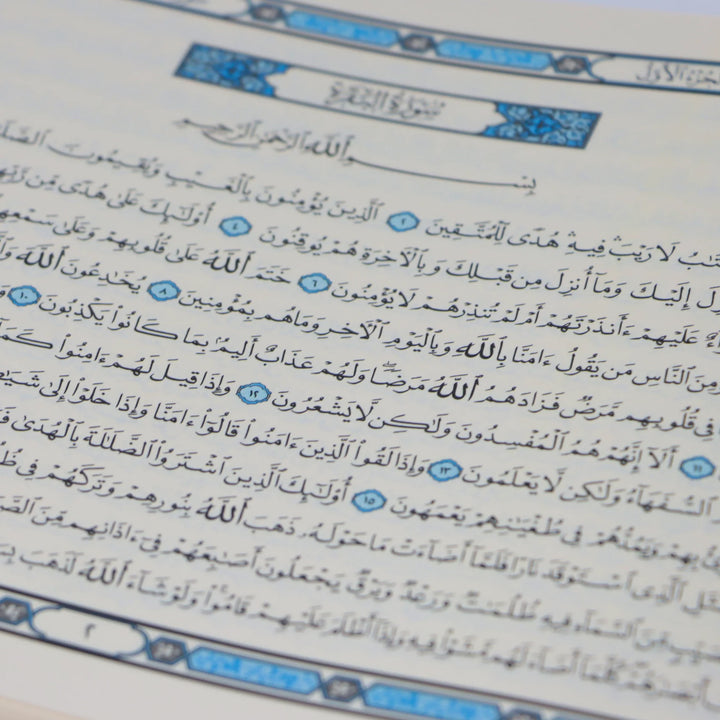 الجزء الأول
سُورَةُ البَقَرَةِ
بِسْمِ ٱللَّهِ ٱلرَّحْمَٰنِ ٱلرَّحِيمِ
لَا رَيْبَ ۛ فِيهِ ۛ هُدًى لِّلْمُتَّقِينَ ٢ ٱلَّذِينَ يُؤْمِنُونَ بِٱلْغَيْبِ وَيُقِيمُونَ
إِلَيْكَ وَمَآ أُنزِلَ مِن قَبْلِكَ وَبِٱلْأَخِرَةِ هُمْ يُوقِنُونَ ٤ أُوْلَٰٓئِكَ عَلَىٰ هُدًى مِّن
عَلَيْهِمْ ءَأَنذَرْتَهُمْ أَمْ لَمْ تُنذِرْهُمْ لَا يُؤْمِنُونَ ٦ خَتَمَ ٱللَّهُ عَلَىٰ قُلُوبِهِمْ وَعَلَىٰ سَمْعِهِمْ
ٱلنَّاسِ مَن يَقُولُ ءَامَنَّا بِٱللَّهِ وَبِٱلْيَوْمِ ٱلْأَخِرِ وَمَا هُم بِمُؤْمِنِينَ ٨ يُخَٰدِعُونَ ٱللَّهَ
فِي قُلُوبِهِم مَّرَضٌ فَزَادَهُمُ ٱللَّهُ مَرَضًا ۖ وَلَهُمْ عَذَابٌ أَلِيمٌۢ بِمَا كَانُوا۟ يَكْذِبُونَ ١٠
١١ أَلَآ إِنَّهُمْ هُمُ ٱلْمُفْسِدُونَ وَلَٰكِن لَّا يَشْعُرُونَ ١٢ وَإِذَا قِيلَ لَهُمْ ءَامِنُوا۟ كَمَآ
ٱلسُّفَهَآءُ وَلَٰكِن لَّا يَعْلَمُونَ ١٣ وَإِذَا لَقُوا۟ ٱلَّذِينَ ءَامَنُوا۟ قَالُوٓا۟ ءَامَنَّا وَإِذَا خَلَوْا۟ إِلَىٰ
بِهِمْ وَيَمُدُّهُمْ فِي طُغْيَٰنِهِمْ يَعْمَهُونَ ١٥ أُوْلَٰٓئِكَ ٱلَّذِينَ ٱشْتَرَوُا۟ ٱلضَّلَٰلَةَ بِٱلْهُدَىٰ
ٱلَّذِي ٱسْتَوْقَدَ نَارًا فَلَمَّآ أَضَآءَتْ مَا حَوْلَهُۥ ذَهَبَ ٱللَّهُ بِنُورِهِمْ وَتَرَكَهُمْ فِي
مِّنَ ٱلسَّمَآءِ فِيهِ ظُلُمَٰتٌ وَرَعْدٌ وَبَرْقٌ يَجْعَلُونَ أَصَٰبِعَهُمْ فِيٓ ءَاذَانِهِم مِّنَ
أَبْصَٰرَهُمْ كُلَّمَآ أَضَآءَ لَهُم مَّشَوْا۟ فِيهِ وَإِذَآ أَظْلَمَ عَلَيْهِمْ قَامُوا۟ وَلَوْ شَآءَ ٱللَّهُ لَذَهَبَ
٢